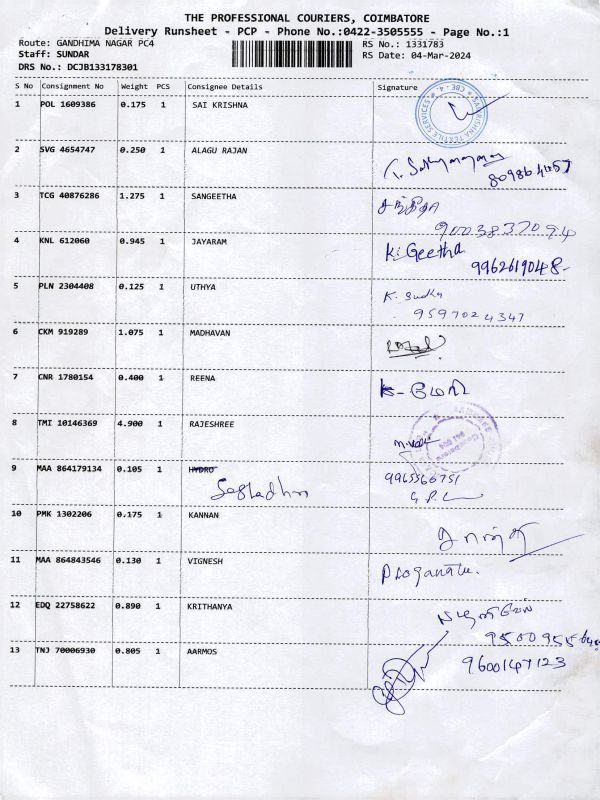 THE PROFESSIONAL COURIERS, COIMBATORE
Delivery Runsheet - PCP - Phone No.:0422-3505555 - Page No.:1
Route: GANDHIMA NAGAR PC4
RS No.: 1331783
Staff: SUNDAR
RS Date: 04-Mar-2024
DRS No.: DCJB133178301
S No Consignment No Weight PCS Consignee Details Signature
1 POL 1609386 0.175 1 SAI KRISHNA
2 SVG 4654747 0.250 1 ALAGU RAJAN
3 TCG 40876286 1.275 1 SANGEETHA
9003837094
4 KNL 612060 0.945 1 JAYARAM K. Geetha
9962619048-
5 PLN 2304408 0.125 1 UTHYA K. Sudha
9597024347
6 CKM 919289 1.075 1 MADHAVAN
7 CNR 1780154 0.400 1 REENA
8 TMI 10146369 4.900 1 RAJESHREE
9 MAA 864179134 0.105 1 HYDRO
10 PMK 1302206 0.175 1 KANNAN
11 MAA 864843546 0.130 1 VIGNESH
12 EDQ 22758622 0.890 1 KRITHANYA
13 TNJ 70006930 0.805 1 AARMOS 9600147123